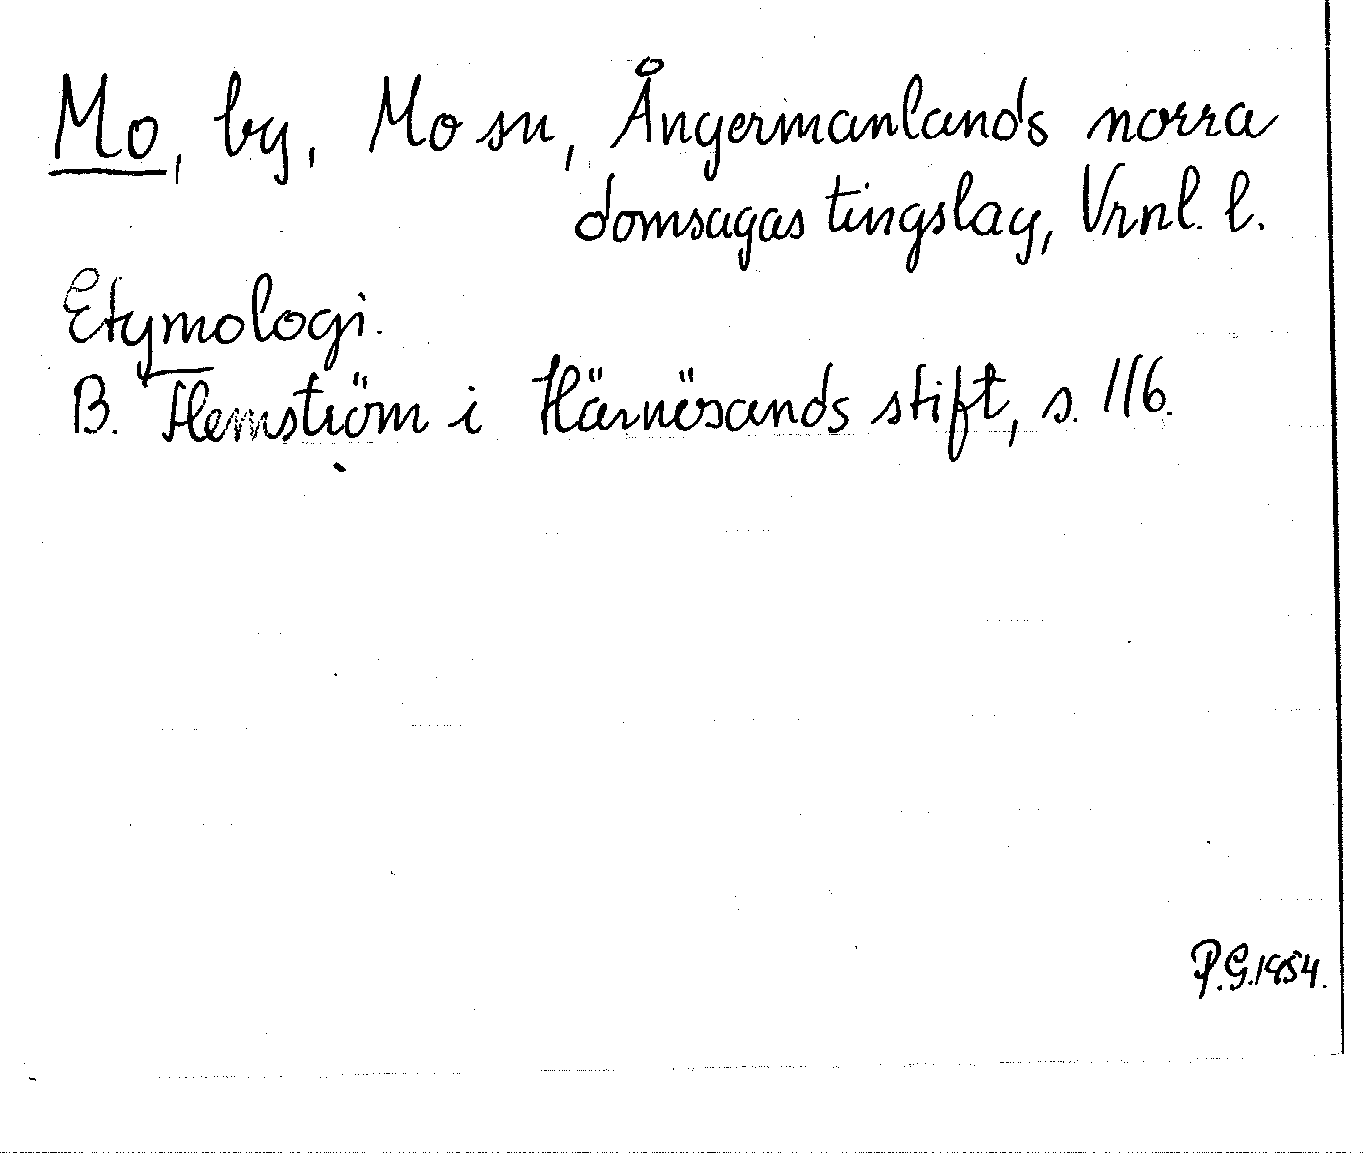 Mo, by, Mo sn, Ångermanlands norra
domsagas tingslag, Vrnl. l.
Etymologi.
B. Hemström i Härnösands stift, s. 116.
P.G. 1954.